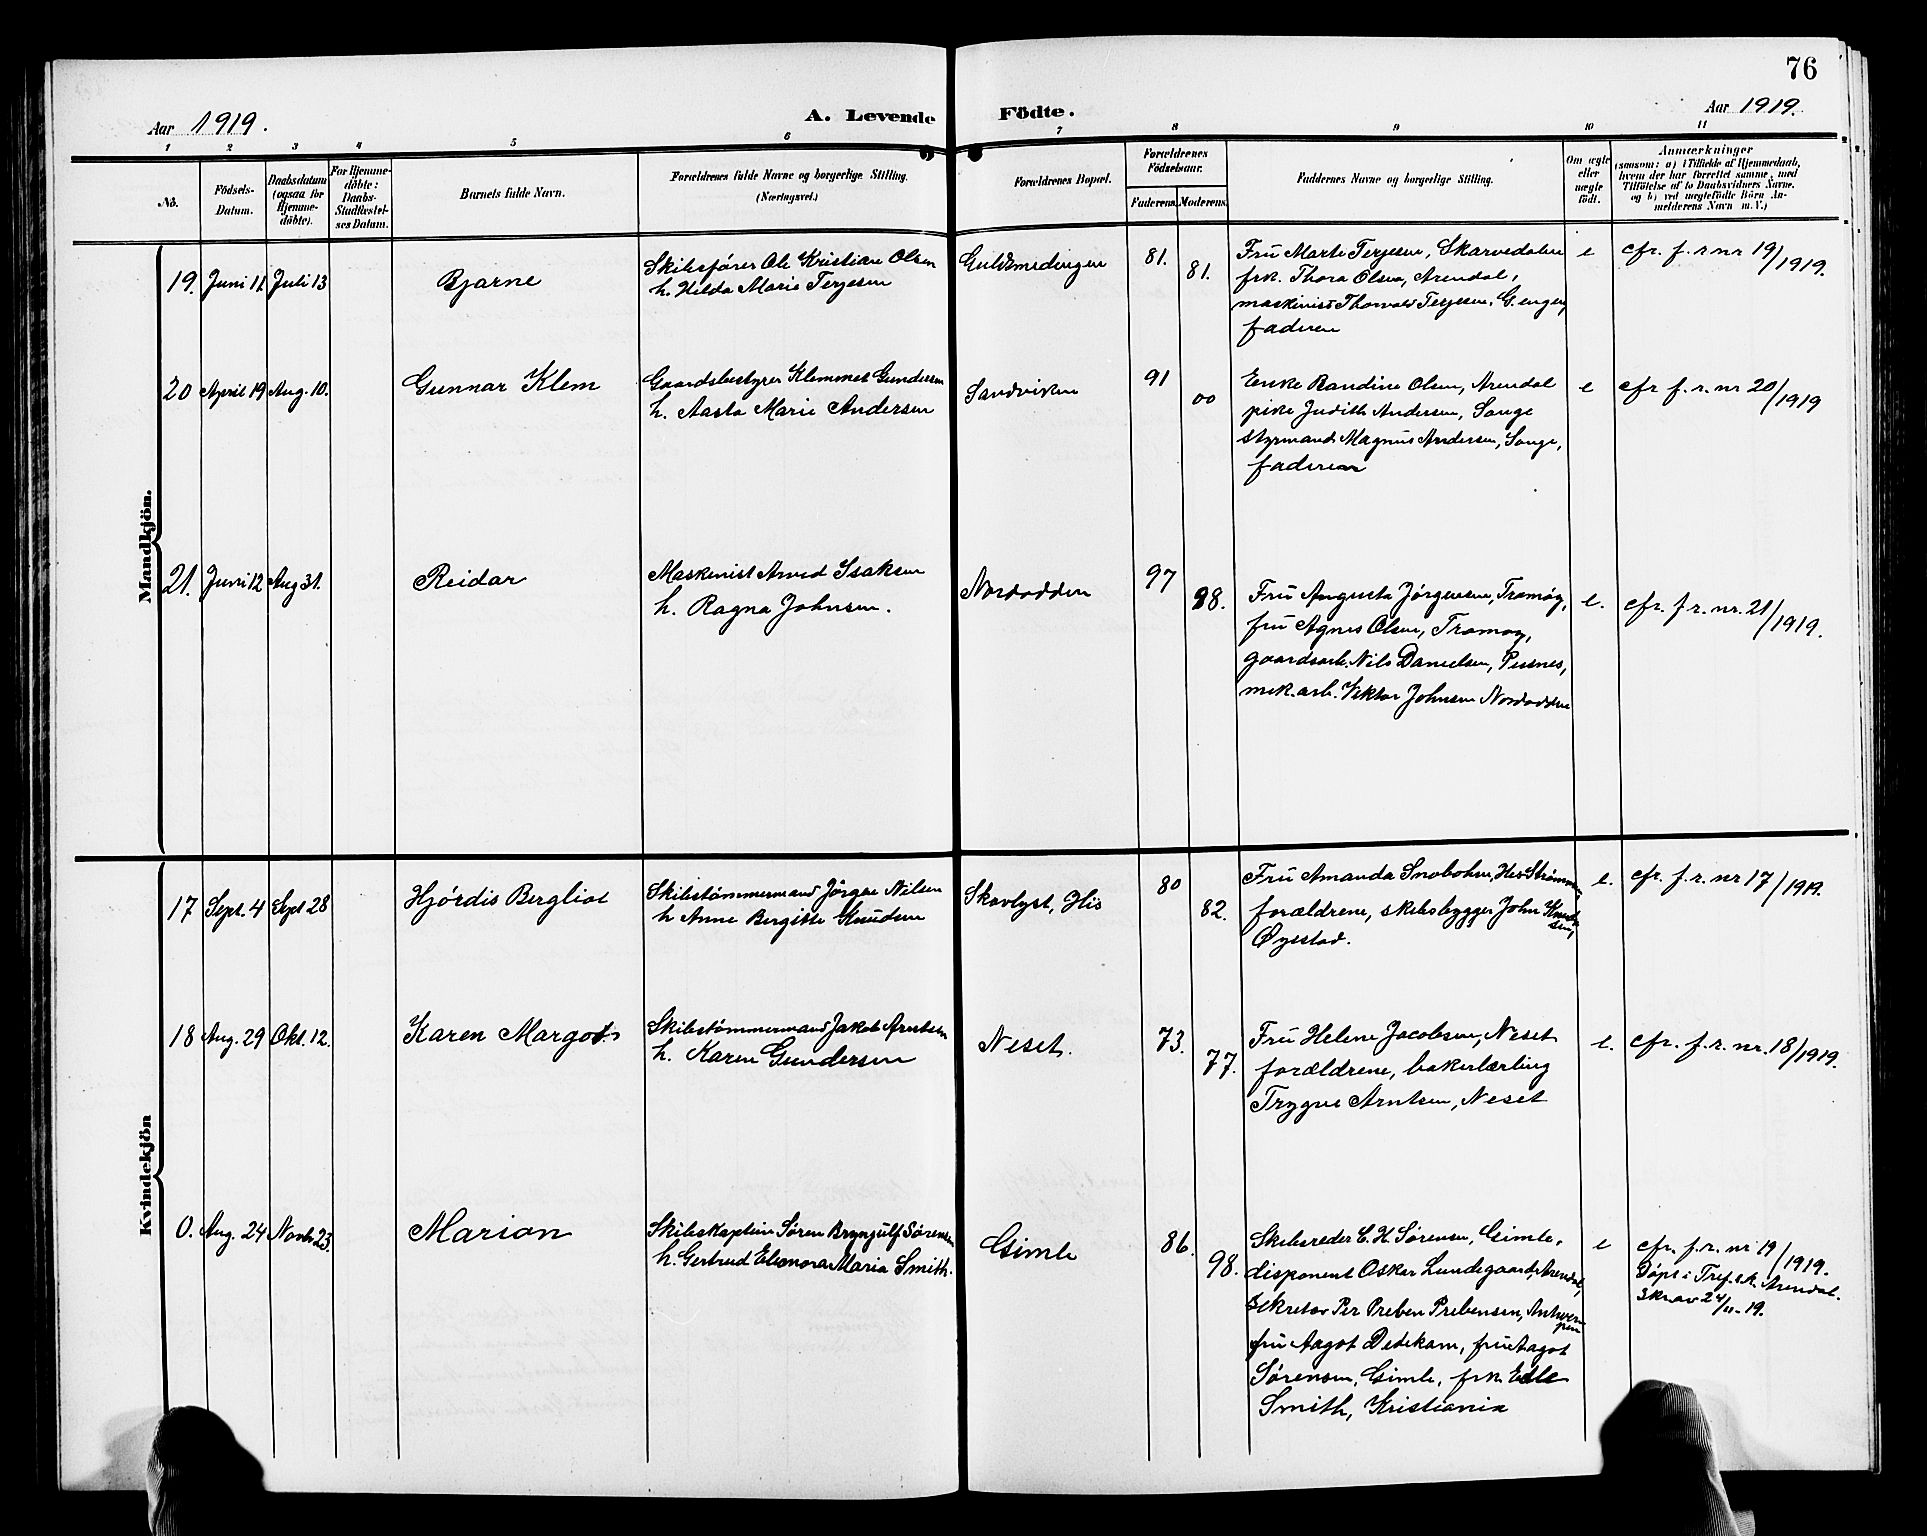 76
Aar 1919.
A. Levende Födte.
Aar 1919.
1 2 3 4 5 6 7 8 9 10 11
No.
Födsels-Datum.
Daabsdatum (ogsaa for Hjemme-döbte).
For Hjemme-döbte: Daabs-Stadfæstel-ses Datum.
Barnets fulde Navn.
Forældrenes fulde Navne og borgerlige Stilling. (Næringsvei.)
Forældrenes Bopæl.
Forældrenes Födselsaar.
Faderens. Moderens.
Faddernes Navne og borgerlige Stilling.
Om ægte eller uægte födt.
Anmærkninger
(saasom: a) i Tilfælde af Hjemmedaab,
hvem der har forrettet samme, med
Tilföielse af to Daabsvidners Navne.
og b) ved uægtefödte Börn An-
melderens Navn m. V.)
Mandkjön.
19. Juni 11 Juli 13 Bjarne
Skibsfører Ole Kristian Olsen
h. Hilda Marie Terjesen
Guldsmedengen 81. 81.
Fru Marte Terjesen, Skarvedalen
frk. Thora Olsen, Arendal,
maskinist Thorvald Terjesen, G.engen,
faderen
e cfr. f. r nr 19/1919.
20 April 19 Aug. 10. Gunnar Klem
Gaardsbestyrer Klemmet Gundersen
h. Aasta Marie Andersen
Sandviken 91 00
Enke Randine Olsen, Arendal
pike Judith Andersen, Songe
styrmand Magnus Andersen, Songe,
faderen
e cfr f. r. nr 20/1919
21. Juni 12 Aug 31. Reidar
Maskinist Arved Isaksen
h. Ragna Johnsen.
Nordodden 97 98.
Fru Augusta Jørgensen, Tromøy,
fru Agnes Olsen, Tromøy,
gaardsarb. Nils Danielsen, Pusnes,
mek. arb. Viktor Johnsen Nordodden
e. cfr. f. r. nr. 21/1919.
Kvindekjön
17 Sept. 4 Sept 28 Hjørdis Bergliot
Skibstømmermand Jørgen Nilsen
h Anne Bergitte Knudsen
Skovlyst, His 80 82.
Fru Amanda Snobohm, His Strømmen,
forældrene, skibsbygger John Knudsen,
Øyestad.
e. cfr. f. r. nr 17/1919.
18 Aug. 29 Okt. 12. Karen Margot
Skibstømmermand Jakob Arntsen
h. Karen Gundersen
Neset. 73. 77.
Fru Helene Jacobsen, Neset
forældrene, bakerlærling
Trygve Arntsen, Neset
e. cfr. f. r. nr. 18/1919.
0. Aug. 24 Novb 23. Marion
Skibskaptein Søren Brynjulf Sørensen
h. Gertrud Eleonora Maria Smith.
Gimle 86. 98.
Skibsreder C. H. Sørensen, Gimle,
disponent Oskar Lundegaard, Arendal,
sekretær Per Preben Prebensen, Antwerpen
fru Aagot Dedekam, fru Aagot
Sørensen, Gimle, frk Edle
Smith, Kristiania
e cfr. f. r. nr 19/1919.
Døpt i Tref. k. Arendal.
Skrav 24/11-19.